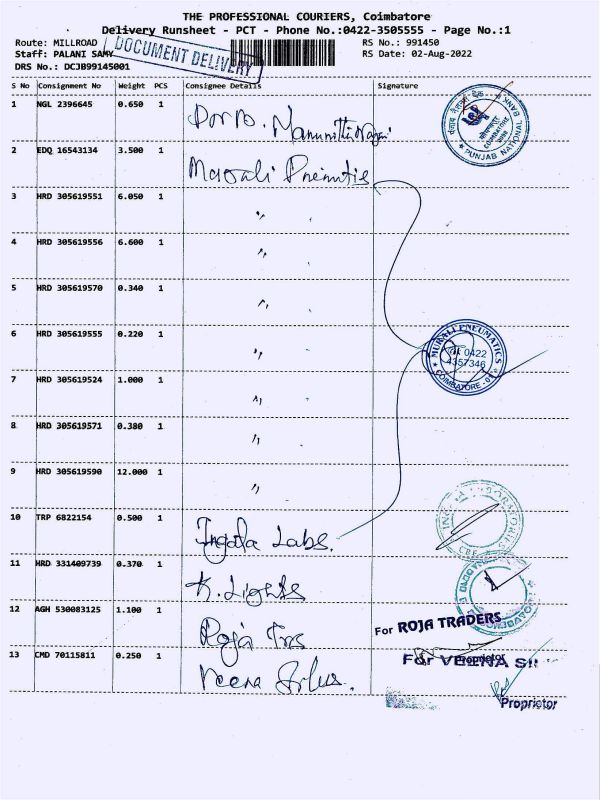 THE PROFESSIONAL COURIERS, Coimbatore
Delivery Runsheet - PCT - Phone No.:0422-3505555 - Page No.:1
Route: MILLROAD
RS No.: 991450
Staff: PALANI SAMY
RS Date: 02-Aug-2022
DRS No.: DCJB99145001
DOCUMENT DELIVERY
S No Consignment No Weight PCS Consignee Details Signature
1 NGL 2396645 0.650 1
PUNJAB NATIONAL BANK
2 EDQ 16543134 3.500 1
3 HRD 305619551 6.050 1 〃
4 HRD 305619556 6.600 1 〃
5 HRD 305619570 0.340 1 〃
6 HRD 305619555 0.220 1 〃
MURALI PNEUMATICS
0422
4357346
COIMBATORE
7 HRD 305619524 1.000 1 〃
8 HRD 305619571 0.380 1 〃
9 HRD 305619590 12.000 1 〃
10 TRP 6822154 0.500 1 Labs.
11 HRD 331409739 0.370 1 K. Lights
12 AGH 530083125 1.100 1 Roja Trs
For ROJA TRADERS
Proprietor
13 CMD 70115811 0.250 1 Veena
For VEENA
Proprietor